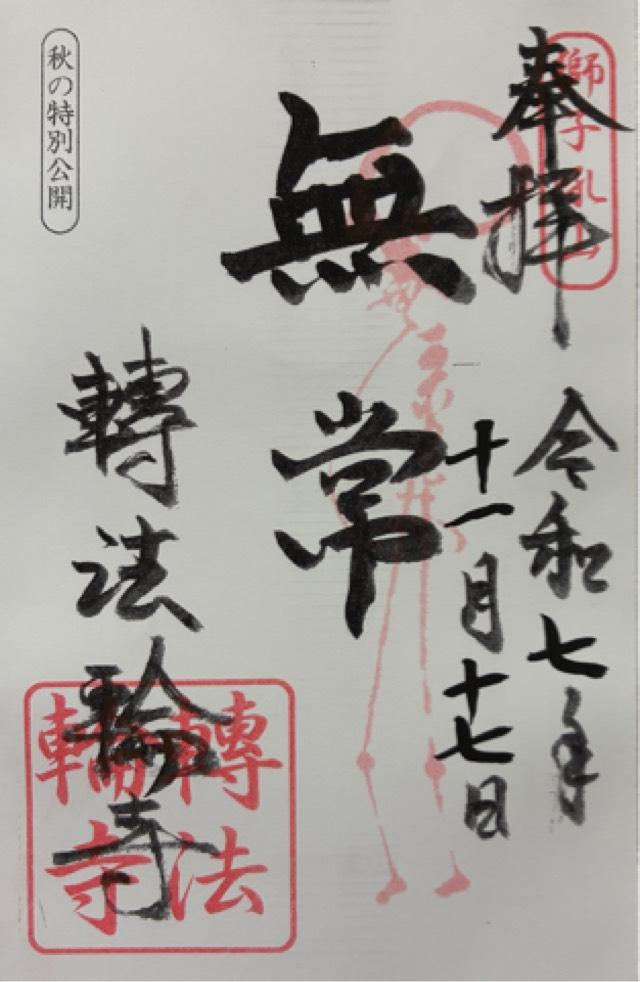 奉拝
獅子吼山
令和七年
十一月十七日
無常
轉法輪寺
轉法輪寺
秋の特別公開